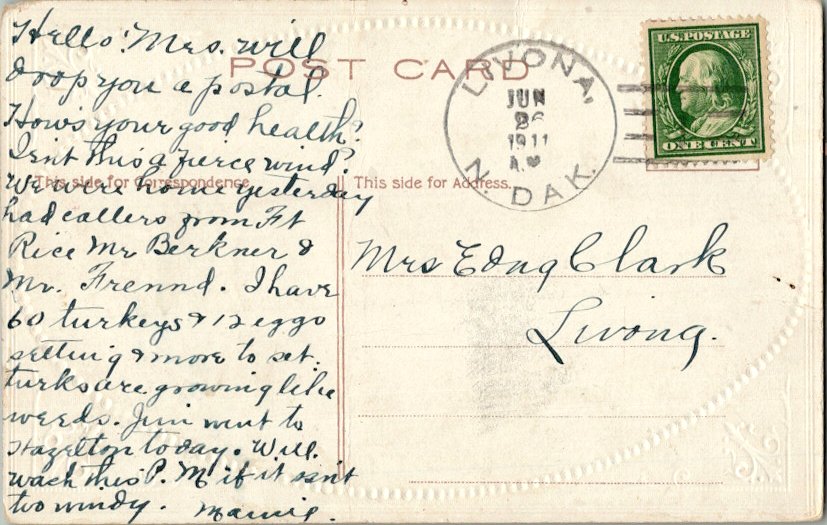 Hello! Mrs. will
drop you a postal.
How's your good health?
Isnt this a fierce wind?
We were home yesterday
had callers from Ft
Rice Mr Berkner &
Mr. Frennd. I have
60 turkeys & 12 eggs
setting & more to set.
turks are growing like
weeds. Jim went to
Hazelton today. Will
wash this P. M if it isn't
too windy. Mamie.
POST CARD
This side for Correspondence.
This side for Address.
LIVONA,
JUN
26
1911
N. DAK.
U.S. POSTAGE
ONE CENT
Mrs Edna Clark
Livona.